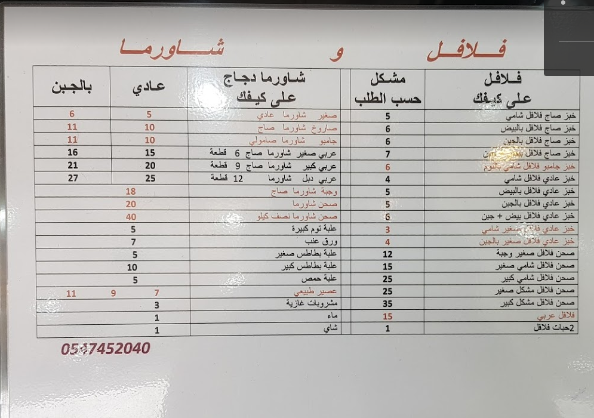 فلافل و شاورما
فلافل على كيفك مشكل حسب الطلب شاورما دجاج على كيفك عادي بالجبن
خبز صاج فلافل شامي 5 صغير شاورما عادي 5 6
خبز صاج فلافل بالبيض 6 صاروخ شاورما صاج 10 11
خبز صاج فلافل بالجبن 6 جامبو شاورما صامولي 10 11
خبز صاج فلافل 7 عربي صغير شاورما صاج 6 قطعة 15 16
خبز جامبو فلافل شامي 6 عربي كبير شاورما صاج 9 قطعة 20 21
خبز عادي فلافل شامي 4 عربي دبل شاورما 12 قطعة 25 27
خبز عادي فلافل بالبيض 5 وجبة شاورما صاج 18
خبز عادي فلافل بالجبن 5 صحن شاورما 20
خبز عادي فلافل بيض + جبن 6 صحن شاورما نصف كيلو 40
خبز عادي فلافل صغير شامي 3 علبة توم كبيرة 5
خبز عادي فلافل صغير بالجبن 4 ورق عنب 7
صحن فلافل صغير وجبة 12 علبة بطاطس صغير 5
صحن فلافل شامي صغير 15 علبة بطاطس كبير 10
صحن فلافل شامي كبير 25 علبة حمص 5
صحن فلافل مشكل صغير 25 عصير طبيعي 7 9 11
صحن فلافل مشكل كبير 35 مشروبات غازية 3
فلافل عربي 15 ماء 1
2حبات فلافل 1 شاي 1
0547452040